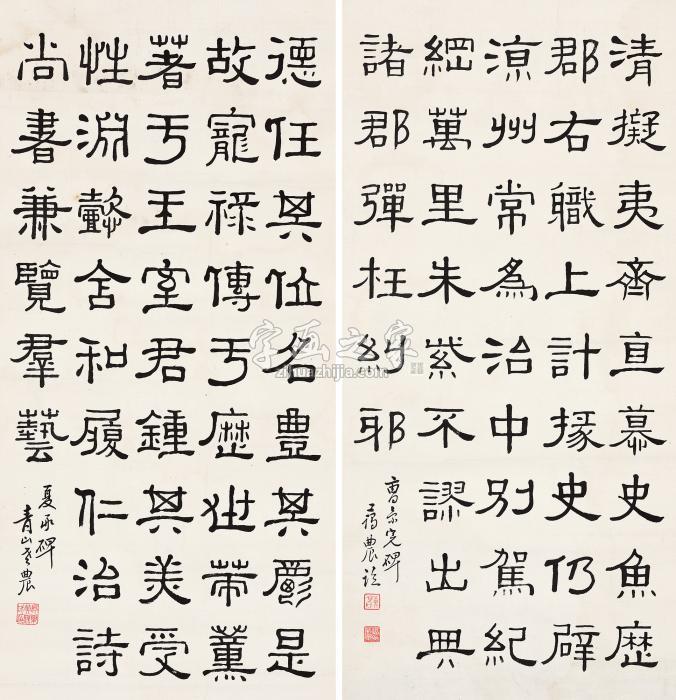 清擬夷齊直慕史魚歷
郡右職上計掾史仍辟
涼州常為治中別駕紀
綱萬里朱紫不謬出典
諸郡彈枉糾邪
曹景完碑
農臨
德任其位名豐其爵是
故寵祿傳于歷世策薰
著于王室君鍾其美受
性淵懿含和履仁治詩
尚書兼覽羣藝
夏承碑
青山老農
字画之家
zihuazhijia.com